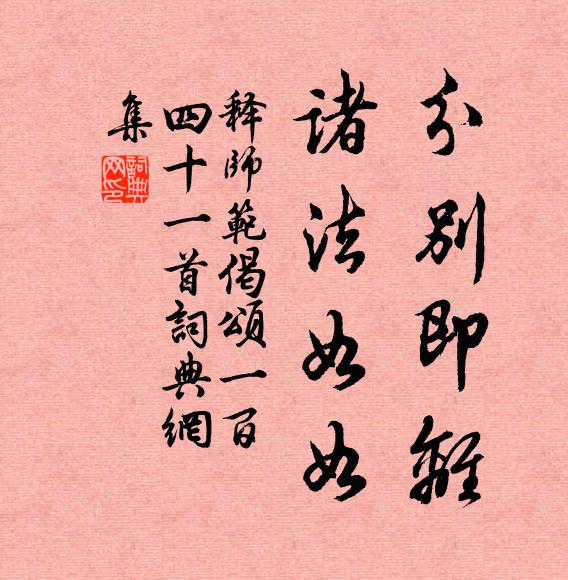 分别即離
諸法如如
释師範偈頌一百
四十一首詞典網
集
詞典
网印